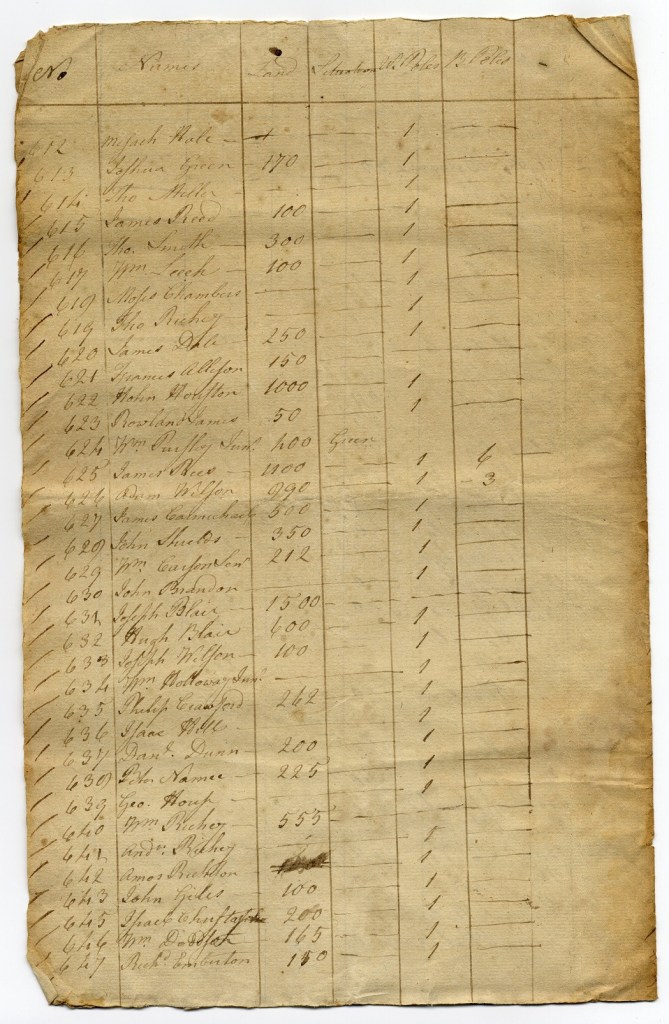 No Names Land Situation W. Poles B. Poles
612 Meshach Hale — 1
613 Joshua Green 170 — 1
614 Tho — — 1
615 James Reed 100 — 1
616 Tho. Smith — 300 — 1
617 Wm Leech — 100 — 1
618 Moses Chambers — — 1
619 Tho Richey — — 1
620 James Dale 250 — 1
621 Allison 150 —
622 John Houston 1000 — 1
623 Rowland James 50 — 1
624 Wm. Pursley Junr. 400 Green
625 James Rees — 1100 — 1 6
626 Adam Wilson 990 — 1 3
627 James Carmichael 500 — 1
628 John Shields — 350 — 1
629 Wm. Carson Senr 212 — 1
630 John Brandon —
631 Joseph Blair — 1500 — 1
632 Hugh Blair 600 — 1
633 Joseph Wilson — 100 — 1
634 Wm Holloway Junr. — 1
635 Philip Crawford 262 — 1
636 Isaac Hill — 1
637 Danl. Dunn — 200 — 1
638 Peter Namee — 225 — 1
639 Geo. Houp — — 1
640 Wm Richey 555 —
641 Andw Richey — — 1
642 Amos — 1
643 John Giles — 100 — 1
645 Isaac 200 — 1
646 Wm 165 — 1
647 Richd. Emberton 150 — 1